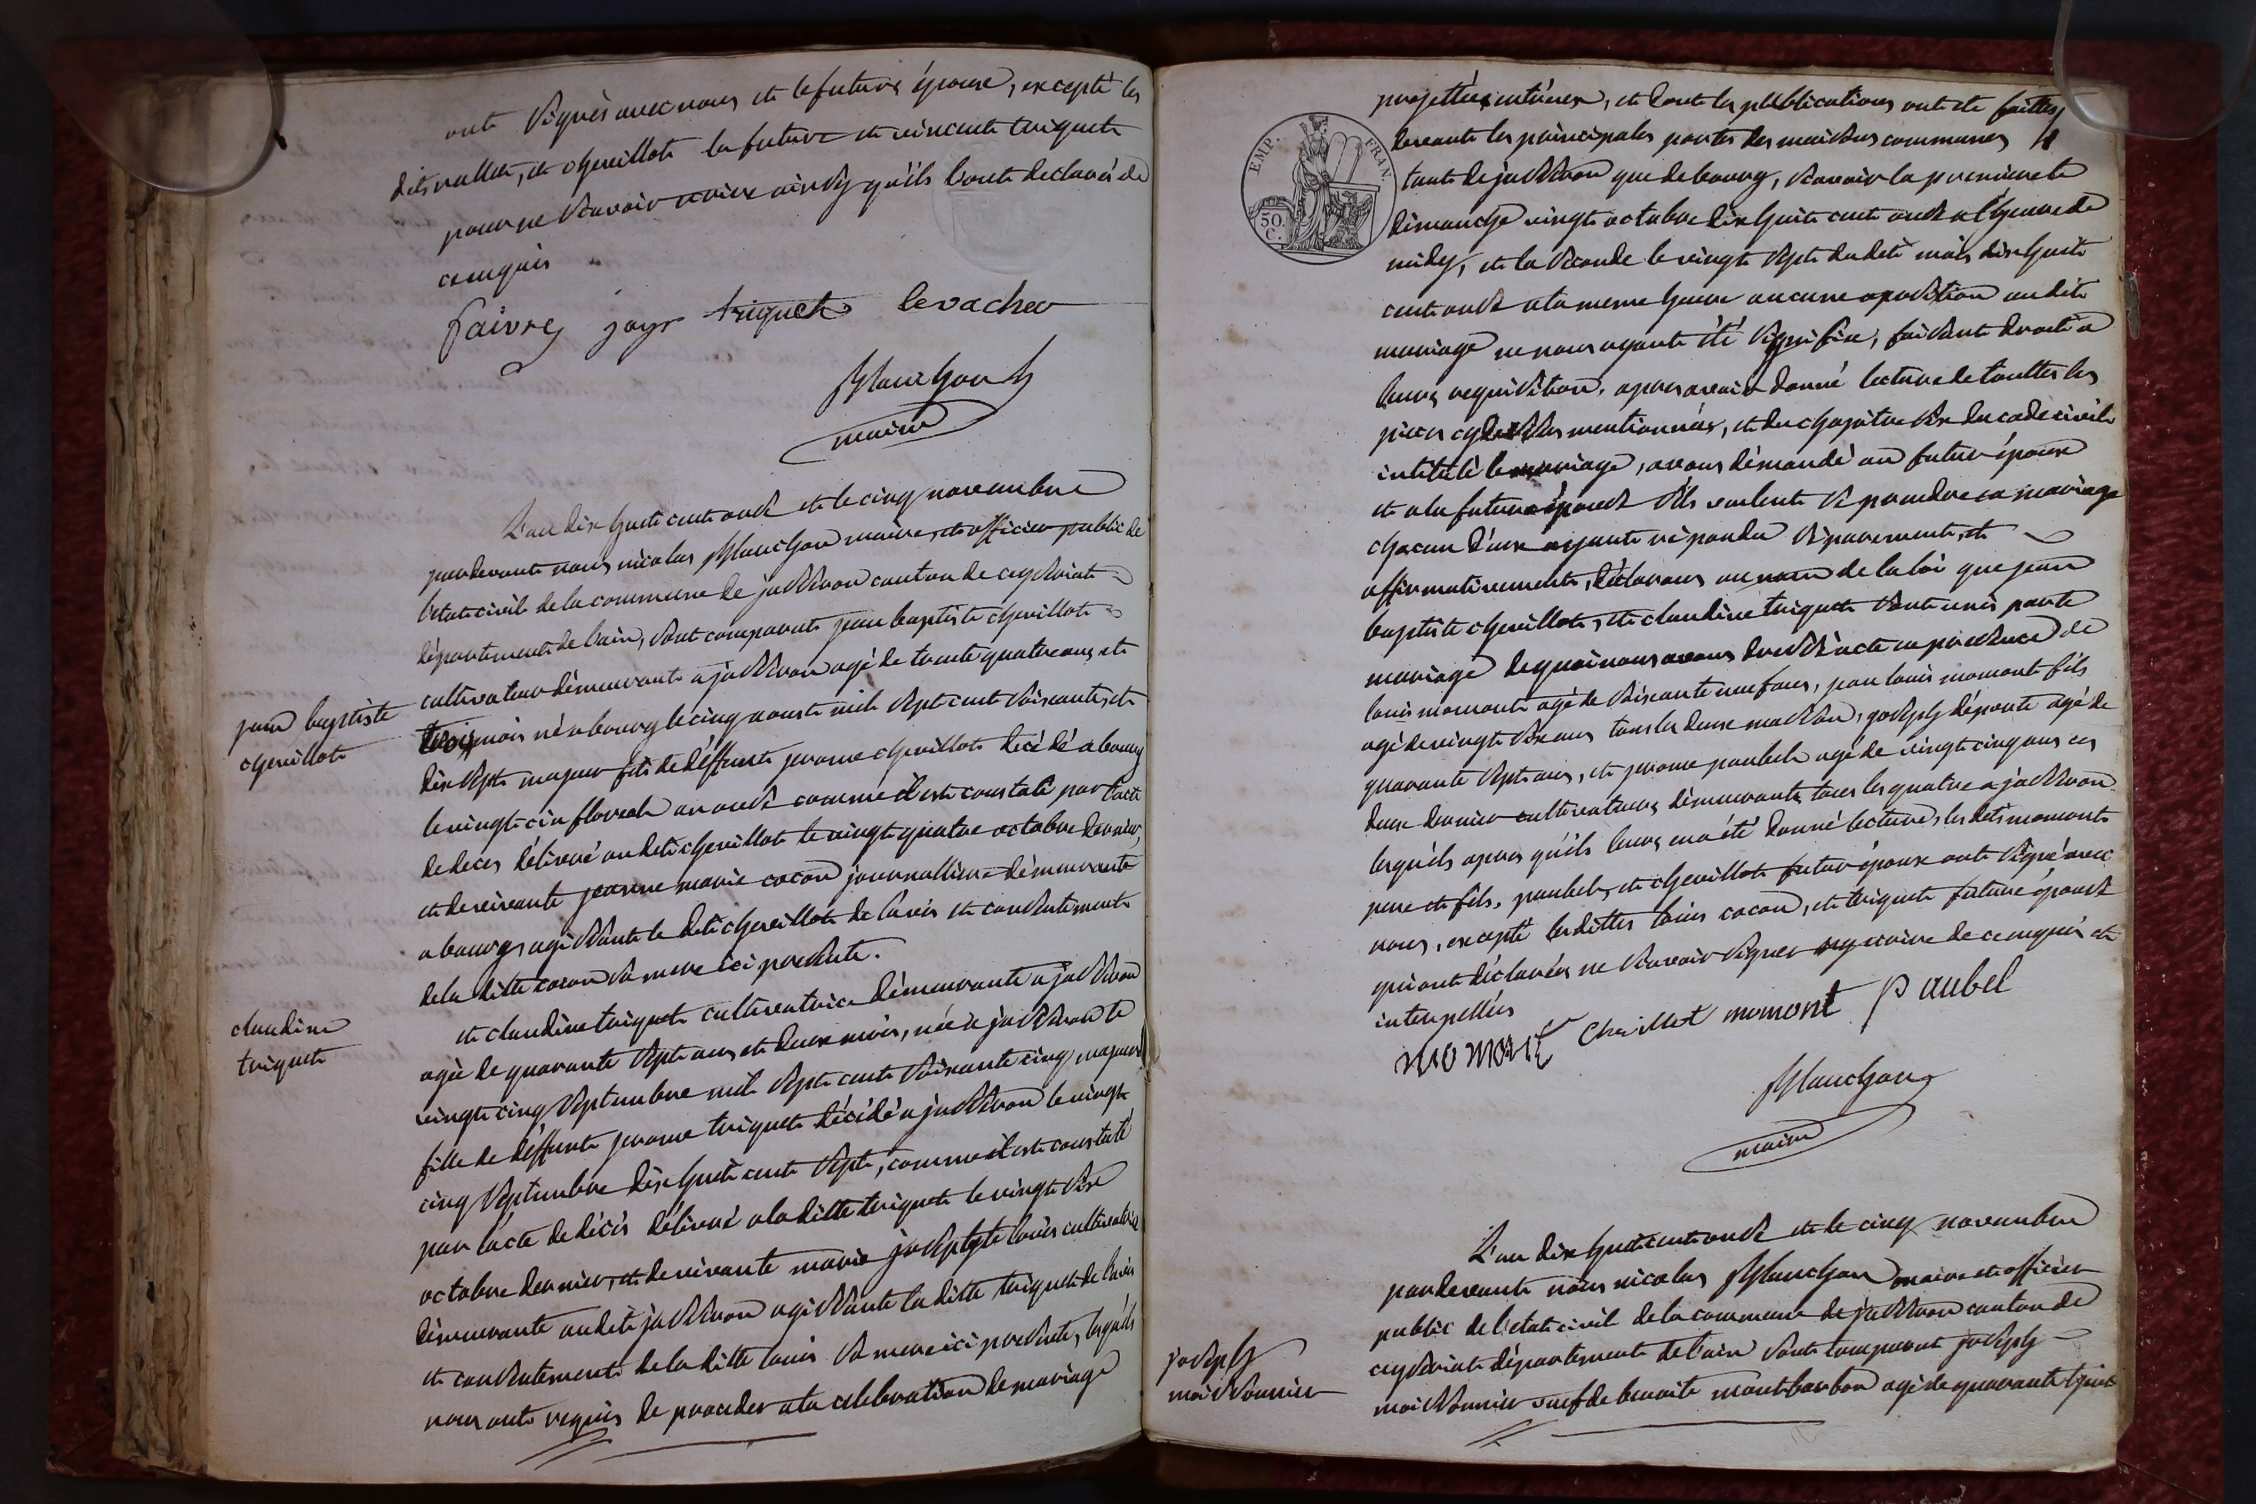 ont signés avec nous et le future épouse, excepté les
dits vallet, et chevillot la future et vincent triquet
pour ne savoir écrire ainsy qu'ils l'ont declaré de
ce enquis
faivre joyr triquet levacher
Planchon
maire
L'an dix huit cent onze et le cinq novembre
pardevant nous nicolas Planchon maire, et officier public de
l'état civil de la commune de jasseron canton de ceyzeriat
département de l'ain, sont comparut jean baptiste chevillot
cultivateur démeurant a jasseron agé de trente quatre ans et
trois mois né a bourg le cinq aoust mil sept cent soixante, et
dix sept majeur fils de déffunt jerome chevillot décédé a bourg
le vingt cin floreal an onze comme il est constaté par l'acte
de deces délivré au dit chevillot le vingt quatre octobre dernier,
et de vivante jeanne marie cocon journalliere démeurante
a bourg, agissant le dit chevillot de l'avis et consentement
de la ditte cocon sa mere ici presente.
jean baptiste
chevillot
et claudine triquet cultivatrice démeurante a jasseron
agée de quarante sept ans et deux mois, née a jasseron le
vingt cinq septembre mil sept cent soixante cinq majeure
fille de déffunt jerome triquet décédé a jasseron le vingt
cinq septembre dix huit cent sept, comme il est constaté
par l'acte de décés délivré a la ditte triquet le vingt six
octobre dernier, et de vivante marie josephte louis cultivatrice
démeurante au dit jasseron agissante la ditte triquet de l'avis
et consentement de la ditte louis sa mere ici presente, lesquels
nous ont requis de proceder a la celebration de mariage
claudine
triquet
EMP. FRAN.
50 C.
projetté entr'eux, et dont les publications ont été faittes
devant les principales portes des maisons communes
tant de jasseron que de bourg, savoir la premiere le
dimanche vingt octobre dix huit cent onze a l'heure de
midy, et la seconde le vingt sept du dit mois dix huit
cent onze a la meme heure aucune oposition au dit
mariage ne nous ayant été signifiée, faisant droit a
leurs requisition, apres avoir donné lecture de touttes les
pieces cy dessus mentionnées, et du chapitre six du code civil
intitulé le mariage, avons démandé au futur époux
et a la future épouse s'ils veulent se prendre en mariage
chacun d'eux ayant répondu séparement, et
affirmativement, déclarons au nom de la loi que jean
baptiste chevillot, et claudine triquet sont unis par le
mariage de quoi nous avons dressé acte en presence de
louis momont agé de soixante neuf ans, jean louis momont fils
agé de vingt six ans tous les deux masson, joseph déponte agé de
quarante sept ans, et jerome paubel agé de vingt cinq ans ces
deux dernier cultivateurs démeurants tous les quatre a jasseron
lesquels apres qu'ils leurs en a été donné lecture, les dits momont
pere et fils, paubel, et chevillot futur époux ont signé avec
nous, excepté les dittes louis cocon, et triquet future épouse
qui ont déclarées ne savoir signer ny ecrire de ce enquis et
interpellés
momont chevillot momont Paubel
Planchon
maire
L'an dix huit cent onze et le cinq novembre
pardevant nous nicolas Planchon maire et officier
public de l'etat civil de la commune de jasseron canton de
ceyzeriat département de l'ain sont comparut joseph
moissonnier veuf de benoite montbarbon agé de quarante trois
joseph
moissonnier